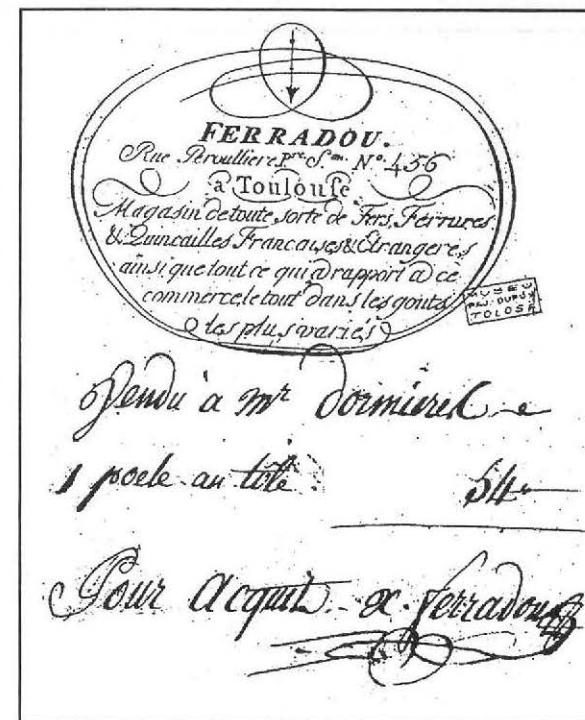 FERRADOU.
Rue Peroulliere P.re S.on N.o 456
a Toulouse
Magasin de toute sorte de Fers, Ferrures
& Quincailles Francaises & Etrangeres
ainsi que tout ce qui a rapport a ce
commerce le tout dans les gouts
les plus variés
MUSEU
PAU DUPUY
TOLOSA
Vendu a mr
1 poele au tôle 54
Pour Acquit Ferradou